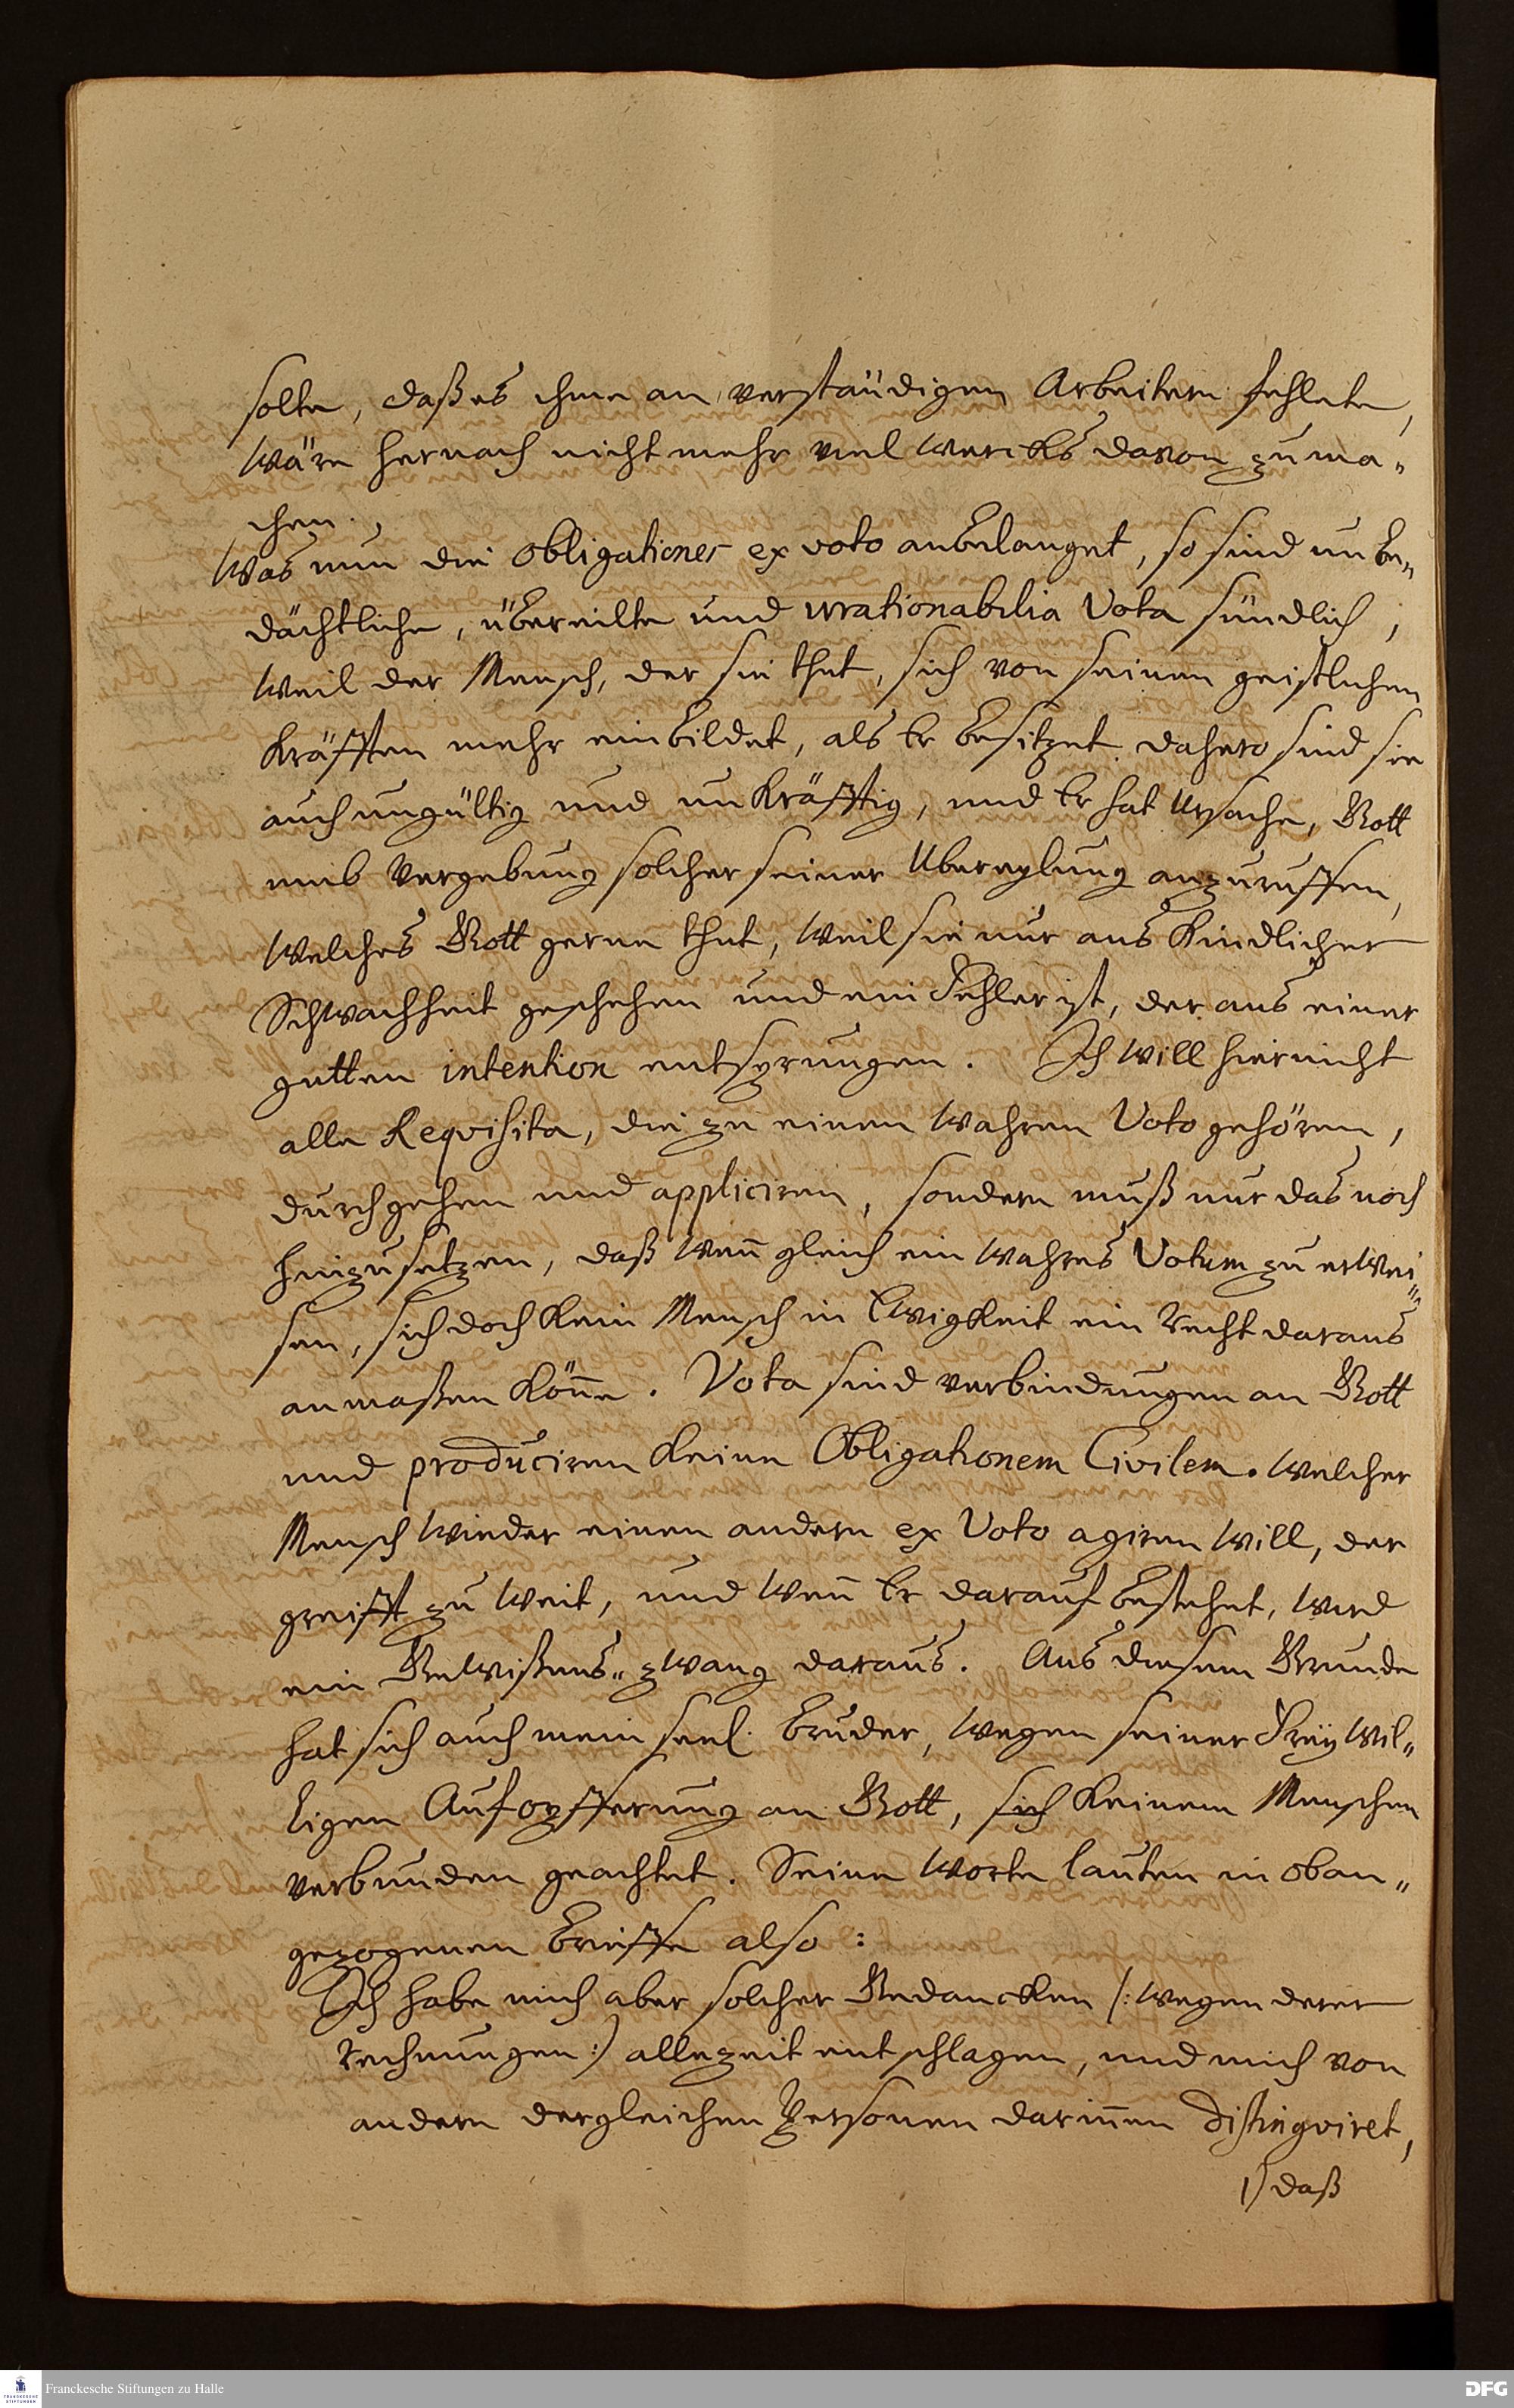 solte, daß es ihme an verständigen Arbeitern fehlete,
wäre hernach nicht mehr viel wercks davon zu ma-
chen.
Was nun die obligationes ex voto anbelanget, so sind unbe-
dächtliche, übereilte und irrationabilia Vota sündlich,
weil der Mensch, der sie thut, sich von seinen geistlichen
Kräfften mehr einbildet, als Er besitzet. dahero sind sie
auch ungültig und unkräfftig, und Er hat Ursache, Gott
umb Vergebung solcher seiner Ubereylung anzuruffen,
welches Gott gerne thut, weil sie nur aus Kindlicher
Schwachheit geschehen und ein Fehler ist, der aus einer
gutten intention entsprungen. Ich will hier nicht
alle Requisita, die zu einen wahren Voto gehören,
durchgehen und appliciren, sondern muß nur das noch
hinzusetzen, daß wenn gleich ein wahres Votum zu erwei-
sen, sich doch kein Mensch in Ewigkeit ein Recht daraus
anmaßen könne. Vota sind verbindungen an Gott
und produciren keine Obligationem Civilem. Welcher
Mensch wieder einen andern ex Voto agiren will, der
greifft zu weit, und wenn Er darauf bestehet, wird
ein Gewißens-zwang daraus. Aus diesem Grunde
hat sich auch mein seel. Bruder, wegen seiner Freywil-
ligen Aufopfferung an Gott, sich keinem Menschen
verbunden geachtet. Seine Worte lauten in oban-
gezogenen Brieffe also:
Ich habe mich aber solcher Gedancken /: wegen derer
Rechnungen :/ allezeit entschlagen, und mich von
andern dergleichen Personen darinnen distingviret,
1) daß
Franckesche Stiftungen zu Halle
DFG